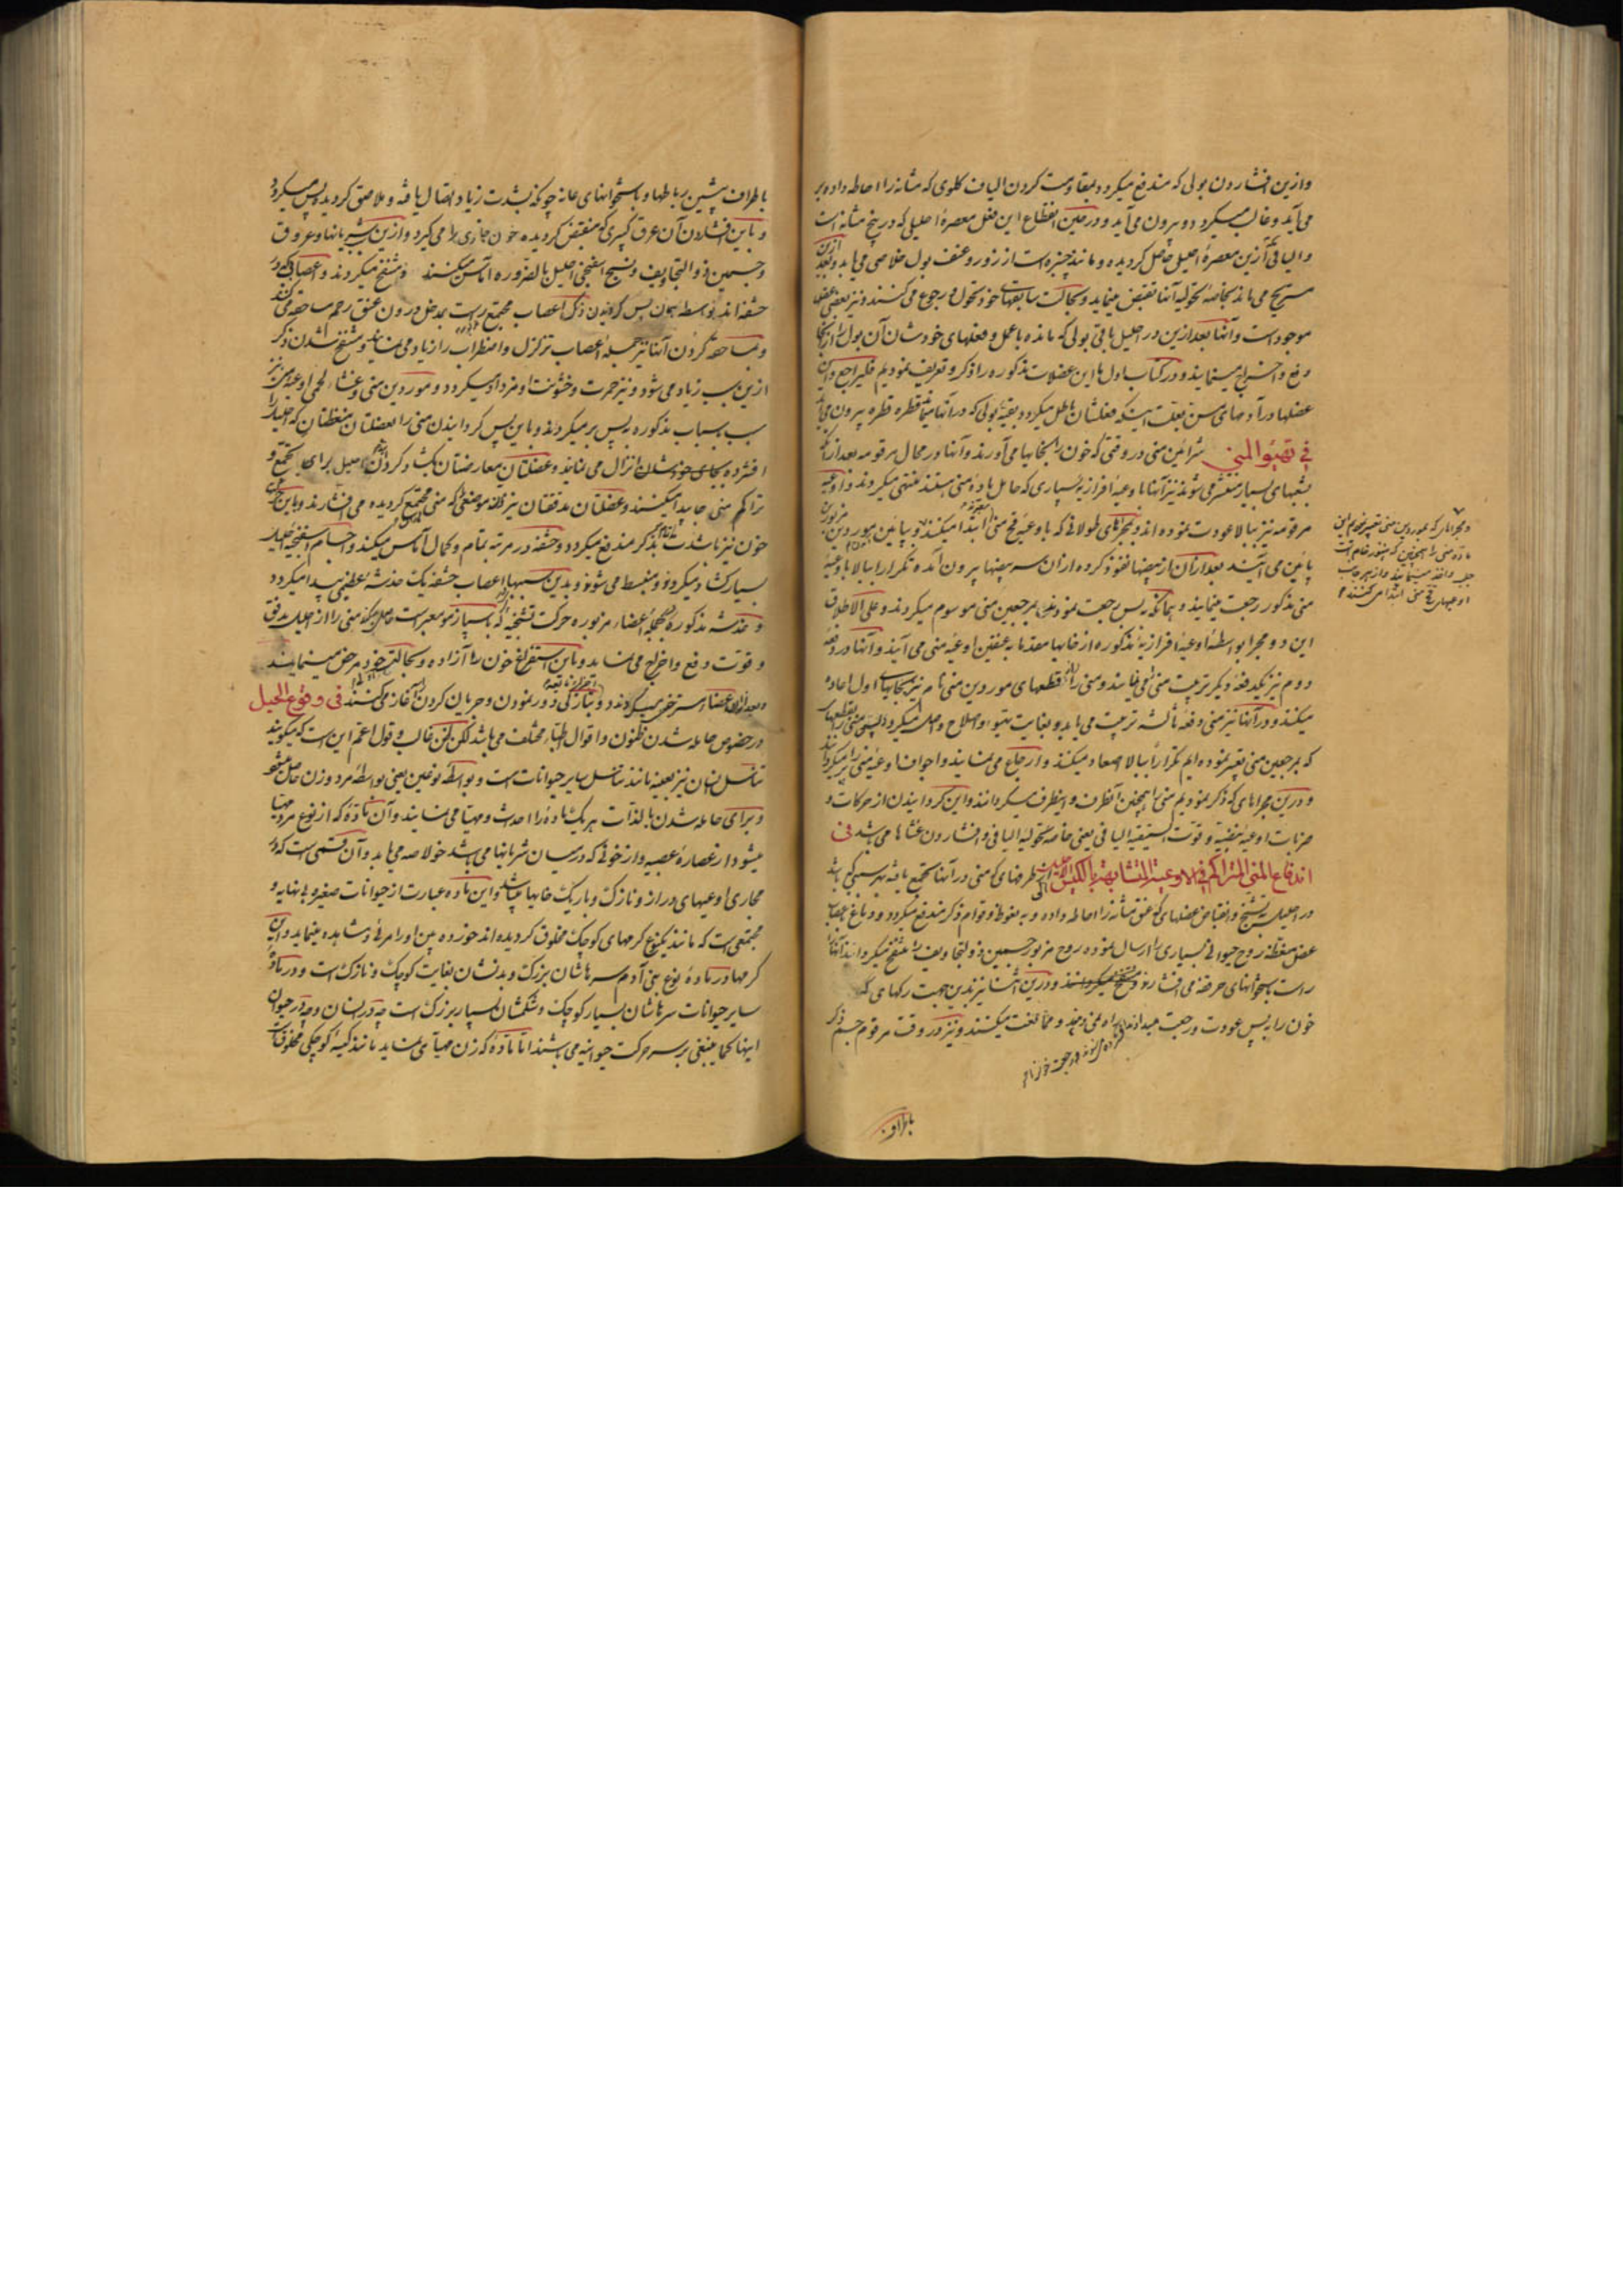 وازین افشاردن بولی که مندفع میکردد بمقاومت کردن الیاف کلوی که مثانه را احاطه داده بر
می‌آید و غالب میکردد و بیرون می‌آید و در حین انقطاع این فعل معصرهٔ احلیلی که در بیخ مثانه است
و الیافی ازین معصرهٔ احلیل حاصل کردیده و مانند چنبره است از زور و عنف بول خلاصی می‌یابد و بعد ازین
مسترخی می‌ماند بخاصهٔ تحولیه آنها تقبض مینماید و بحالت سابقهای خود تحول و رجوع می‌کنند و نیز بعضی عضل
موجود است و آنها بعد ازین در احلیل باقی بولی که مانده باعمل و فعلهای خودشان آن بول را از آنجا
دفع و اخراج مینمایند و در کتاب اول ما این عضلات مذکوره را ذکر و تعریف نمودیم فلیراجع و این
عضلها در آدمهای مسن بعلت اینکه فعلشان باطل میکردد بقیهٔ بولی که در آنها میماند قطره قطره بیرون می‌آید
فی تهیؤ المنی شرائین منی در وقتی که خون را بخایها می‌آورند و آنها در محال مرقومه بعد از آنکه
بشعبهای بسیار منتشر می‌شوند نیز آنها باوعیهٔ افرازیهٔ بسیاری که حامل مادهٔ منی هستند منتهی میکردند و اوعیهٔ
مرقومه نیز ببالا عودت نموده اند و بمجراهای طولانی که باوعیهٔ فخ منی ابتدا میکنند و بپائین موردین مزبورین
پائین می‌آیند بعد از آن از بیضها نفوذ کرده از آن سر بیضها بیرون آمده تکرارا ببالا باوعیهٔ
منی مذکور رجعت مینمایند و بمانکه به پس رجعت نمودند بمرجعین منی موسوم میکردند و علی الاطلاق
این دو مجرا بواسطهٔ اوعیهٔ افرازیهٔ مذکوره از خایها مقدما به عنقین اوعیهٔ منی می‌آیند و آنها در دفعهٔ
دوم نیز یکدفعهٔ دیکر تربیت منی را می‌نمایند و منی را به قطعهای موردین منی نام نیز بجایهای اول اعاده
میکنند و در آنها نیز منی دفعهٔ ثالثه تربیت می‌یابد و بغایت تهیؤ و اصلاح واصل میکردد پس منی را بقطعها
که بمرجعین منی تعبیر نموده ایم تکرارا ببالا اصعاد میکنند و ارجاع می‌نمایند و اجواف اوعیهٔ منی را پر میکردانند
و درین مجراهای که ذکر نمودیم منی را همچنین آنطرف و اینطرف میکردانند و این کردانیدن از حرکات و
ضربات اوعیهٔ نبضیه و قوت لستیقیهٔ الیافی یعنی خاصهٔ تحولیهٔ الیافی و افشاردن غشاها می‌باشد فی
اندفاع المنی المتراکم فی الاوعیة المتشابهة بالکیس الی الاحلیل از طرفهای که منی در آنها تجمع یافته بهر سببی که باشد
در احلیل بتشنج و انقباض عضلهای که عنق مثانه را احاطه داده و به نعوظ و قوام ذکر مندفع میکردد و دماغ بعصاب
عضل منعظه روح حیوانی بسیاری را ارسال نموده روح مزبور جسمین ذو التجاویف را منتفخ میکرداند آنها
راست باستخوانهای حرقفه می‌افشارند و تشنج میکردانند و درین اثنا نیز بدین جهت رکهای که
خون را به پس عودت و رجعت میدادند و ممانعت میکنند و نیز در وقت مرقوم جسم ذکر
و مجراهای که بموردین منی تعبیر نمودیم این
مادهٔ منی را همچنین که هنوز خام است
اوعیهای فخ منی ابتدا می‌کنند
باطراف
باطراف پیشین رباطها و باستخوانهای عانه چونکه بشدت زیاد اتصال یافته و ملاصق کردیده پس میکردد
و باین افشاردن آن عرق کبیری که منقبض کردیده خون جاری را می‌کیرد و ازین سبب شریانها و عروق
و جسمین ذو التجاویف و نسیج اسفنجی احلیل بالضروره آماس میکنند و منتفخ میکردند و اعصابی که در
حشفه اند بواسطهٔ همون پس کردیدن ذکر اعصاب مجتمع راست بمدخل درون عنق رحم مساحقه می‌کنند
و بمساحقه کردن آنها نیز جملهٔ اعصاب تزلزل و اضطراب را زیاد می‌نمایند و منتفخ شدن ذکر
ازین سبب زیاد می‌شود و نیز حمرت و خشونت او مزداد میکردد و موردین منی و غشاء لحمی اوعیهٔ منی نیز
بسبب اسباب مذکوره به پس بر میکردند و باین پس کردانیدن منی را عضلتان منعظتان که احلیل را
افشرده بجای خودشان انزال می‌نمایند و عضلتان معارضتان بکشاد کردن احلیل برای تجمع و
تراکم منی جا پیدا میکنند و عضلتان مدفقتان نیز در موضعی که منی مجتمع کردیده می‌افشارند و باین سبب
خون نیز باشدت تمام بذکر مندفع میکردد و حشفه در مرتبهٔ تمام و کمال آماس میکند و اجسام اسفنجیهٔ احلیل
بسیار کشاد میکردند و منبسط می‌شوند و بدین سببها اعصاب حشفه یک خدشهٔ عظیمی پیدا میکردد
و خدشهٔ مذکوره بجملهٔ اعضاء مزبوره حرکت تشنجیه که بسیار زور معبر است حاصل میکند منی را از احلیل بدفق
و قوت دفع و اخراج می‌نماید و باین استفراغ خون را آزاده و بحالت خود مرخص مینمایند
و بعد از آن اعضاء مسترخی میکردند و بتازکی دور نمودن و جریان کردن را آغاز می‌کنند فی وقوع الحبل
در خصوص حامله شدن ظنون و اقوال اطباء مختلف می‌باشد لکن ظن غالب و قول اعم این است که میکویند
تناسل انسان نیز بعینه مانند تناسل سایر حیوانات است و بواسطهٔ نوعین یعنی بواسطهٔ مرد و زن حاصل میشود
و برای حامله شدن بالذات هر یک ماده را احداث و مهیا می‌نمایند و آن ماده که از نوع مرد مهیا
میشود از عصارهٔ عصبیه و از خونی که در میان شریانها می‌باشد خولاصه می‌یابد و آن قسمی است که در
مجاری اوعیهای دراز و نازک و باریک خایها میباشد و این ماده عبارت از حیوانات صغیرهٔ بانهایه و
مجتمعی است که مانند یکنوع کرمهای کوچک مخلوق کردیده اند خورده بین او را مرئی و مشاهده مینماید و این
کرمها در مادهٔ نوع بنی آدم سرهاشان بزرک و بدنشان بغایت کوچک و نازک است و در مادهٔ
سایر حیوانات سرهاشان بسیار کوچک و شکمشان بسیار بزرک است چه در انسان و چه در حیوان
اینها کما ینبغی بر سر حرکت حیوانیه می‌باشند اما مادهٔ که زن مهیا می‌نماید مانند کیسهٔ کوچکی مخلوقات